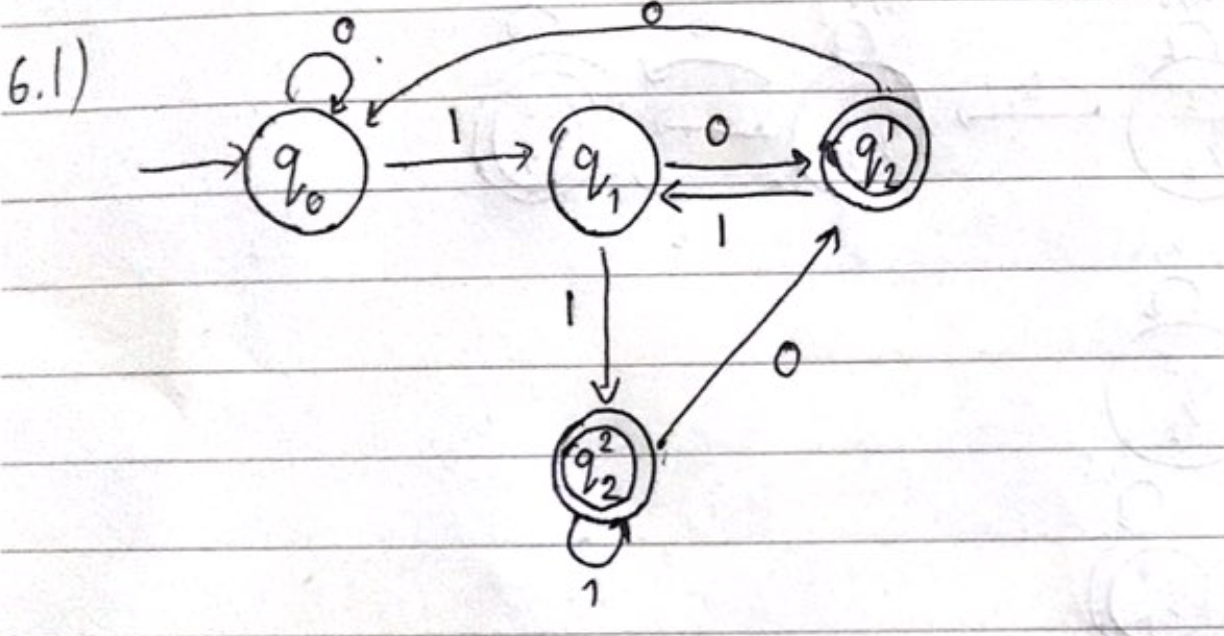 6.1)
0
0
q0
1
q1
0
q2^1
1
1
0
q2^2
1